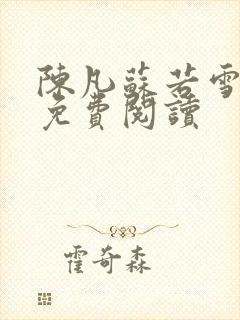 陳凡蘇若雪
免費閱讀
霍奇森